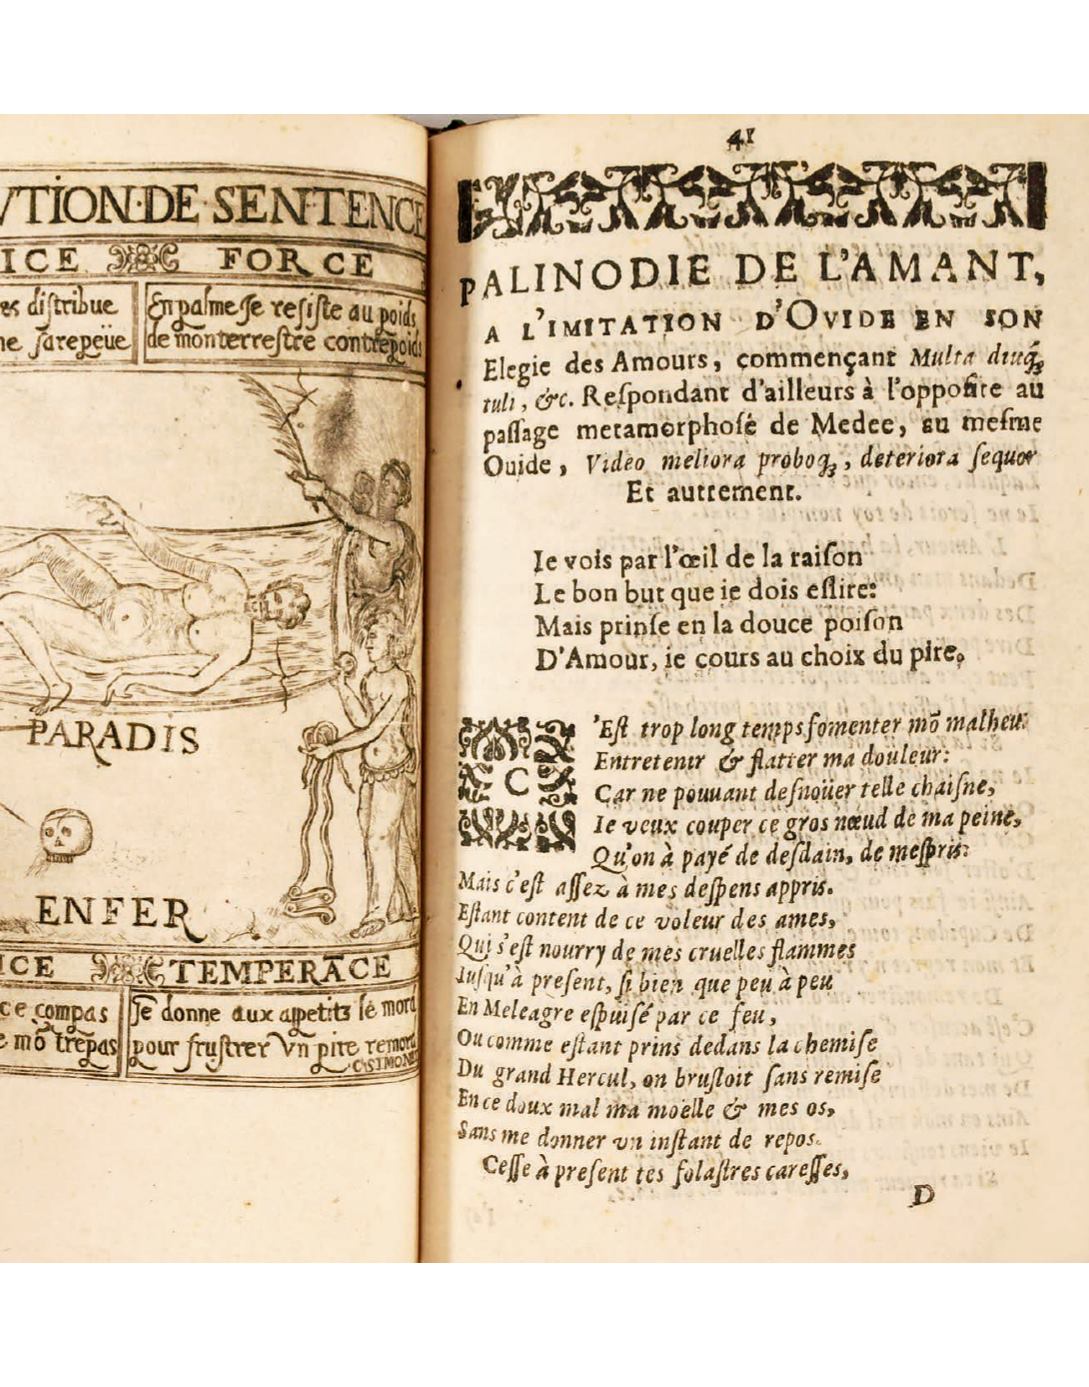 VTION·DE·SENTENCE
ICE FORCE
es distribue
ne sarepeüe
En palme je resiste au poids
de mon terrestre contrepoids
PARADIS
ENFER
ICE TEMPERĀCE
ce compas
mõ trepas
Je donne aux appetits le mord
pour frustrer vn pire remord
41
PALINODIE DE L'AMANT,
A L'IMITATION D'OVIDE EN SON
Elegie des Amours, commençant Multa diuq́;
tuli, &c. Reſpondant d'ailleurs à l'oppoſite au
paſſage metamorphoſé de Medee, au meſme
Ouide, Video meliora proboq;, deteriora ſequor
Et autrement.
Je vois par l'œil de la raiſon
Le bon but que ie dois eſlire:
Mais prinſe en la douce poiſon
D'Amour, ie cours au choix du pire.
C'Eſt trop long temps fomenter mõ malheur
Entretenir & flatter ma douleur:
Car ne pouuant deſnoüer telle chaiſne,
Ie veux couper ce gros nœud de ma peine,
Qu'on à payé de deſdain, de meſpris:
Mais c'eſt aſſez à mes deſpens appris.
Eſtant content de ce voleur des ames,
Qui s'eſt nourry de mes cruelles flammes
Iuſqu'à preſent, ſi bien que peu à peu
En Meleagre eſpuiſé par ce feu,
Ou comme eſtant prins dedans la chemiſe
Du grand Hercul, on bruſloit ſans remiſe
En ce doux mal ma moëlle & mes os,
Sans me donner vn inſtant de repos.
Ceſſe à preſent tes folaſtres careſſes,
D